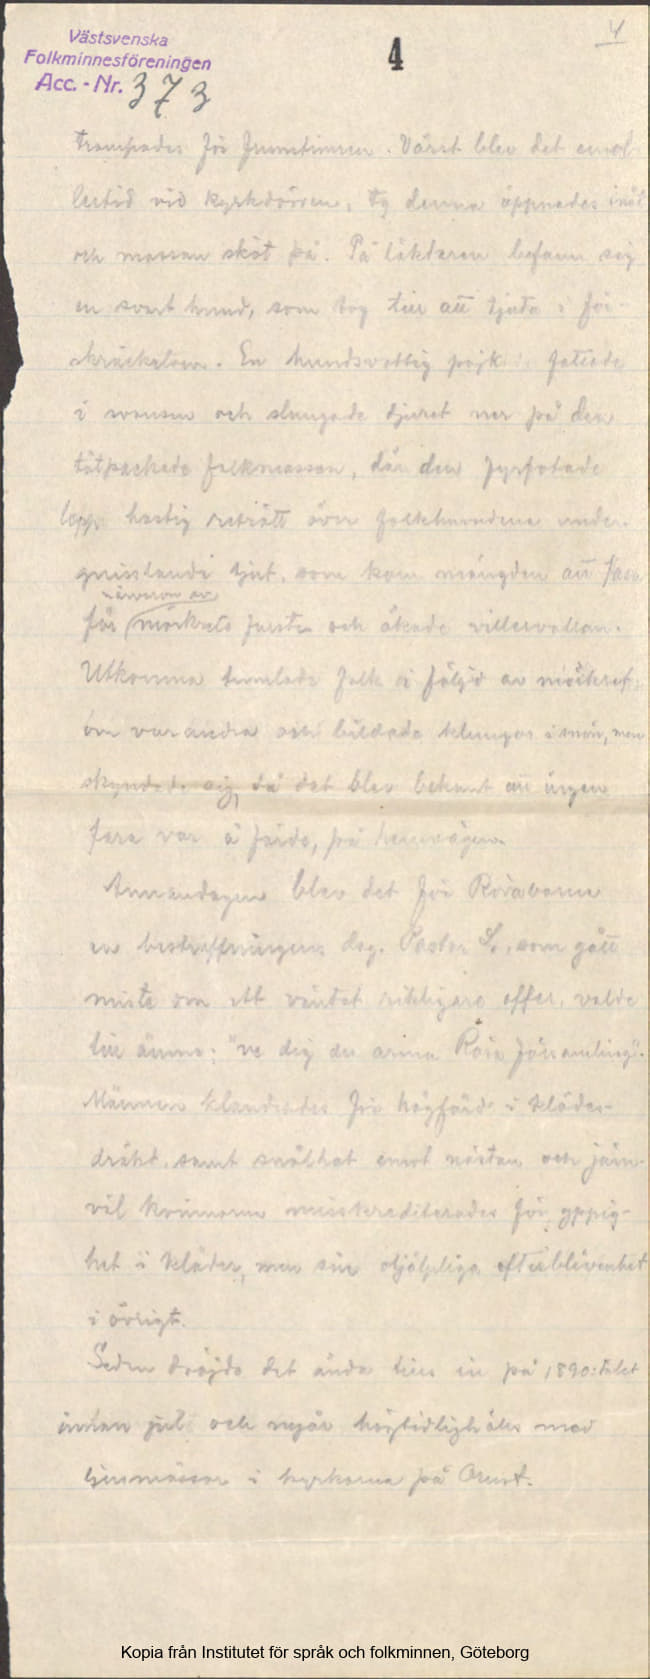 Västsvenska
Folkminnesföreningen
Acc. - Nr. 373
4
4
trampades för . Värst blev det
vid kyrkdörren, ty denna öppnades inåt
och massan sköt på. På läktaren befann sig
en svart hund, som tog till att tjuta i för-
skräckelsen. En hundsvottig pojk fattade
i svansen och slungade djuret ner på den
tätpackade folkmassan, där den fyrfotade
lopp hastig reträtt över folkhuvudena under
gnisslande tjut, som kom mängden att fasa
närvaron av
för mörkrets furste och ökade villervallan.
Utkomna tumlade folk i följd av mörkret
om varandra och bildade klungor i snön, men
skyndade sig, då det blev bekant att ingen
fara var å färde, på hemvägen.
Annandagen blev det för Röraborna
en bestraffningens dag. Pastor L., som gått
miste om ett väntat rikligare offer, valde
till ämne: "ve dig du arma Röra församling".
Männen klandrades för högfärd i klädes-
dräkt, samt snålhet emot nästan och jäm-
väl kvinnorna misskrediterades för yppig-
het i kläder, men sin ohjälpliga efterblivenhet
i övrigt.
Seden dröjde det ända till in på 1890:talet
innan jul och nyår högtidlighölls med
ljusmässor i kyrkorna på Orust.
Kopia från Institutet för språk och folkminnen, Göteborg